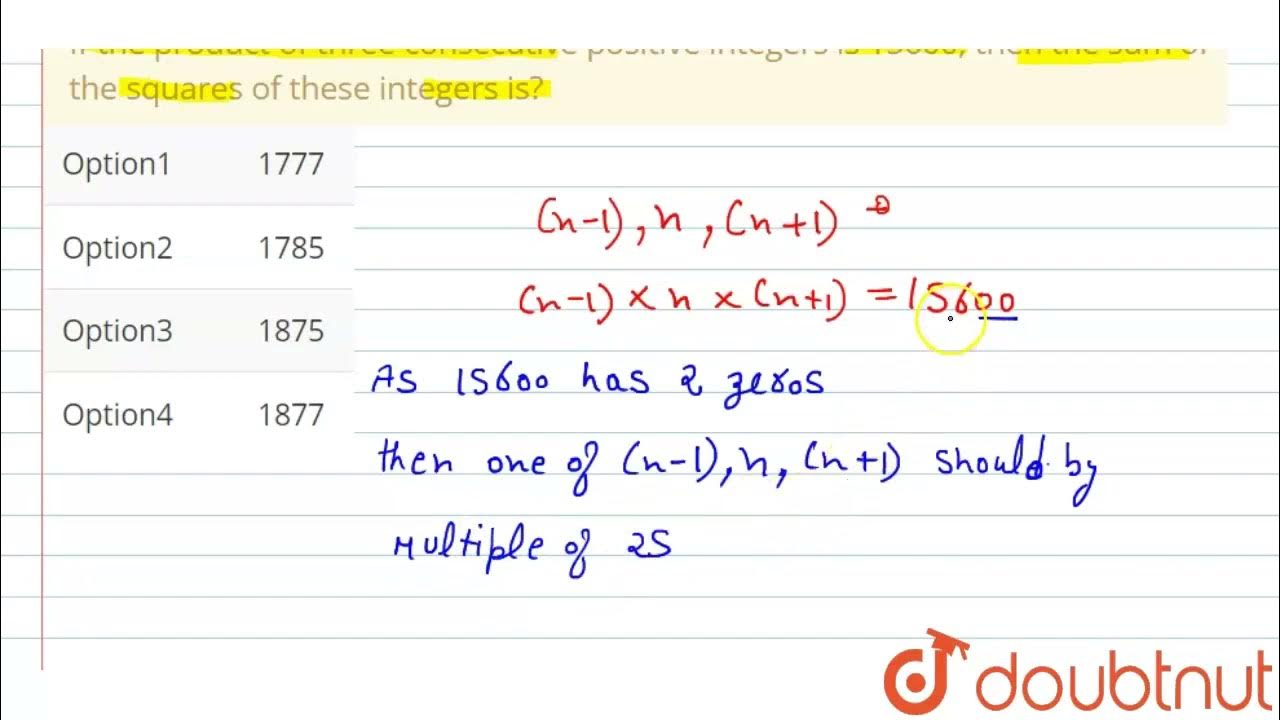 If the product of three consecutive positive integers is 15600, then the sum of
the squares of these integers is?
Option1 1777
Option2 1785
Option3 1875
Option4 1877
(n-1), n, (n+1)
(n-1) × n × (n+1) = 15600
As 15600 has 2 zeros
then one of (n-1), n, (n+1) should by
Multiple of 25
doubtnut